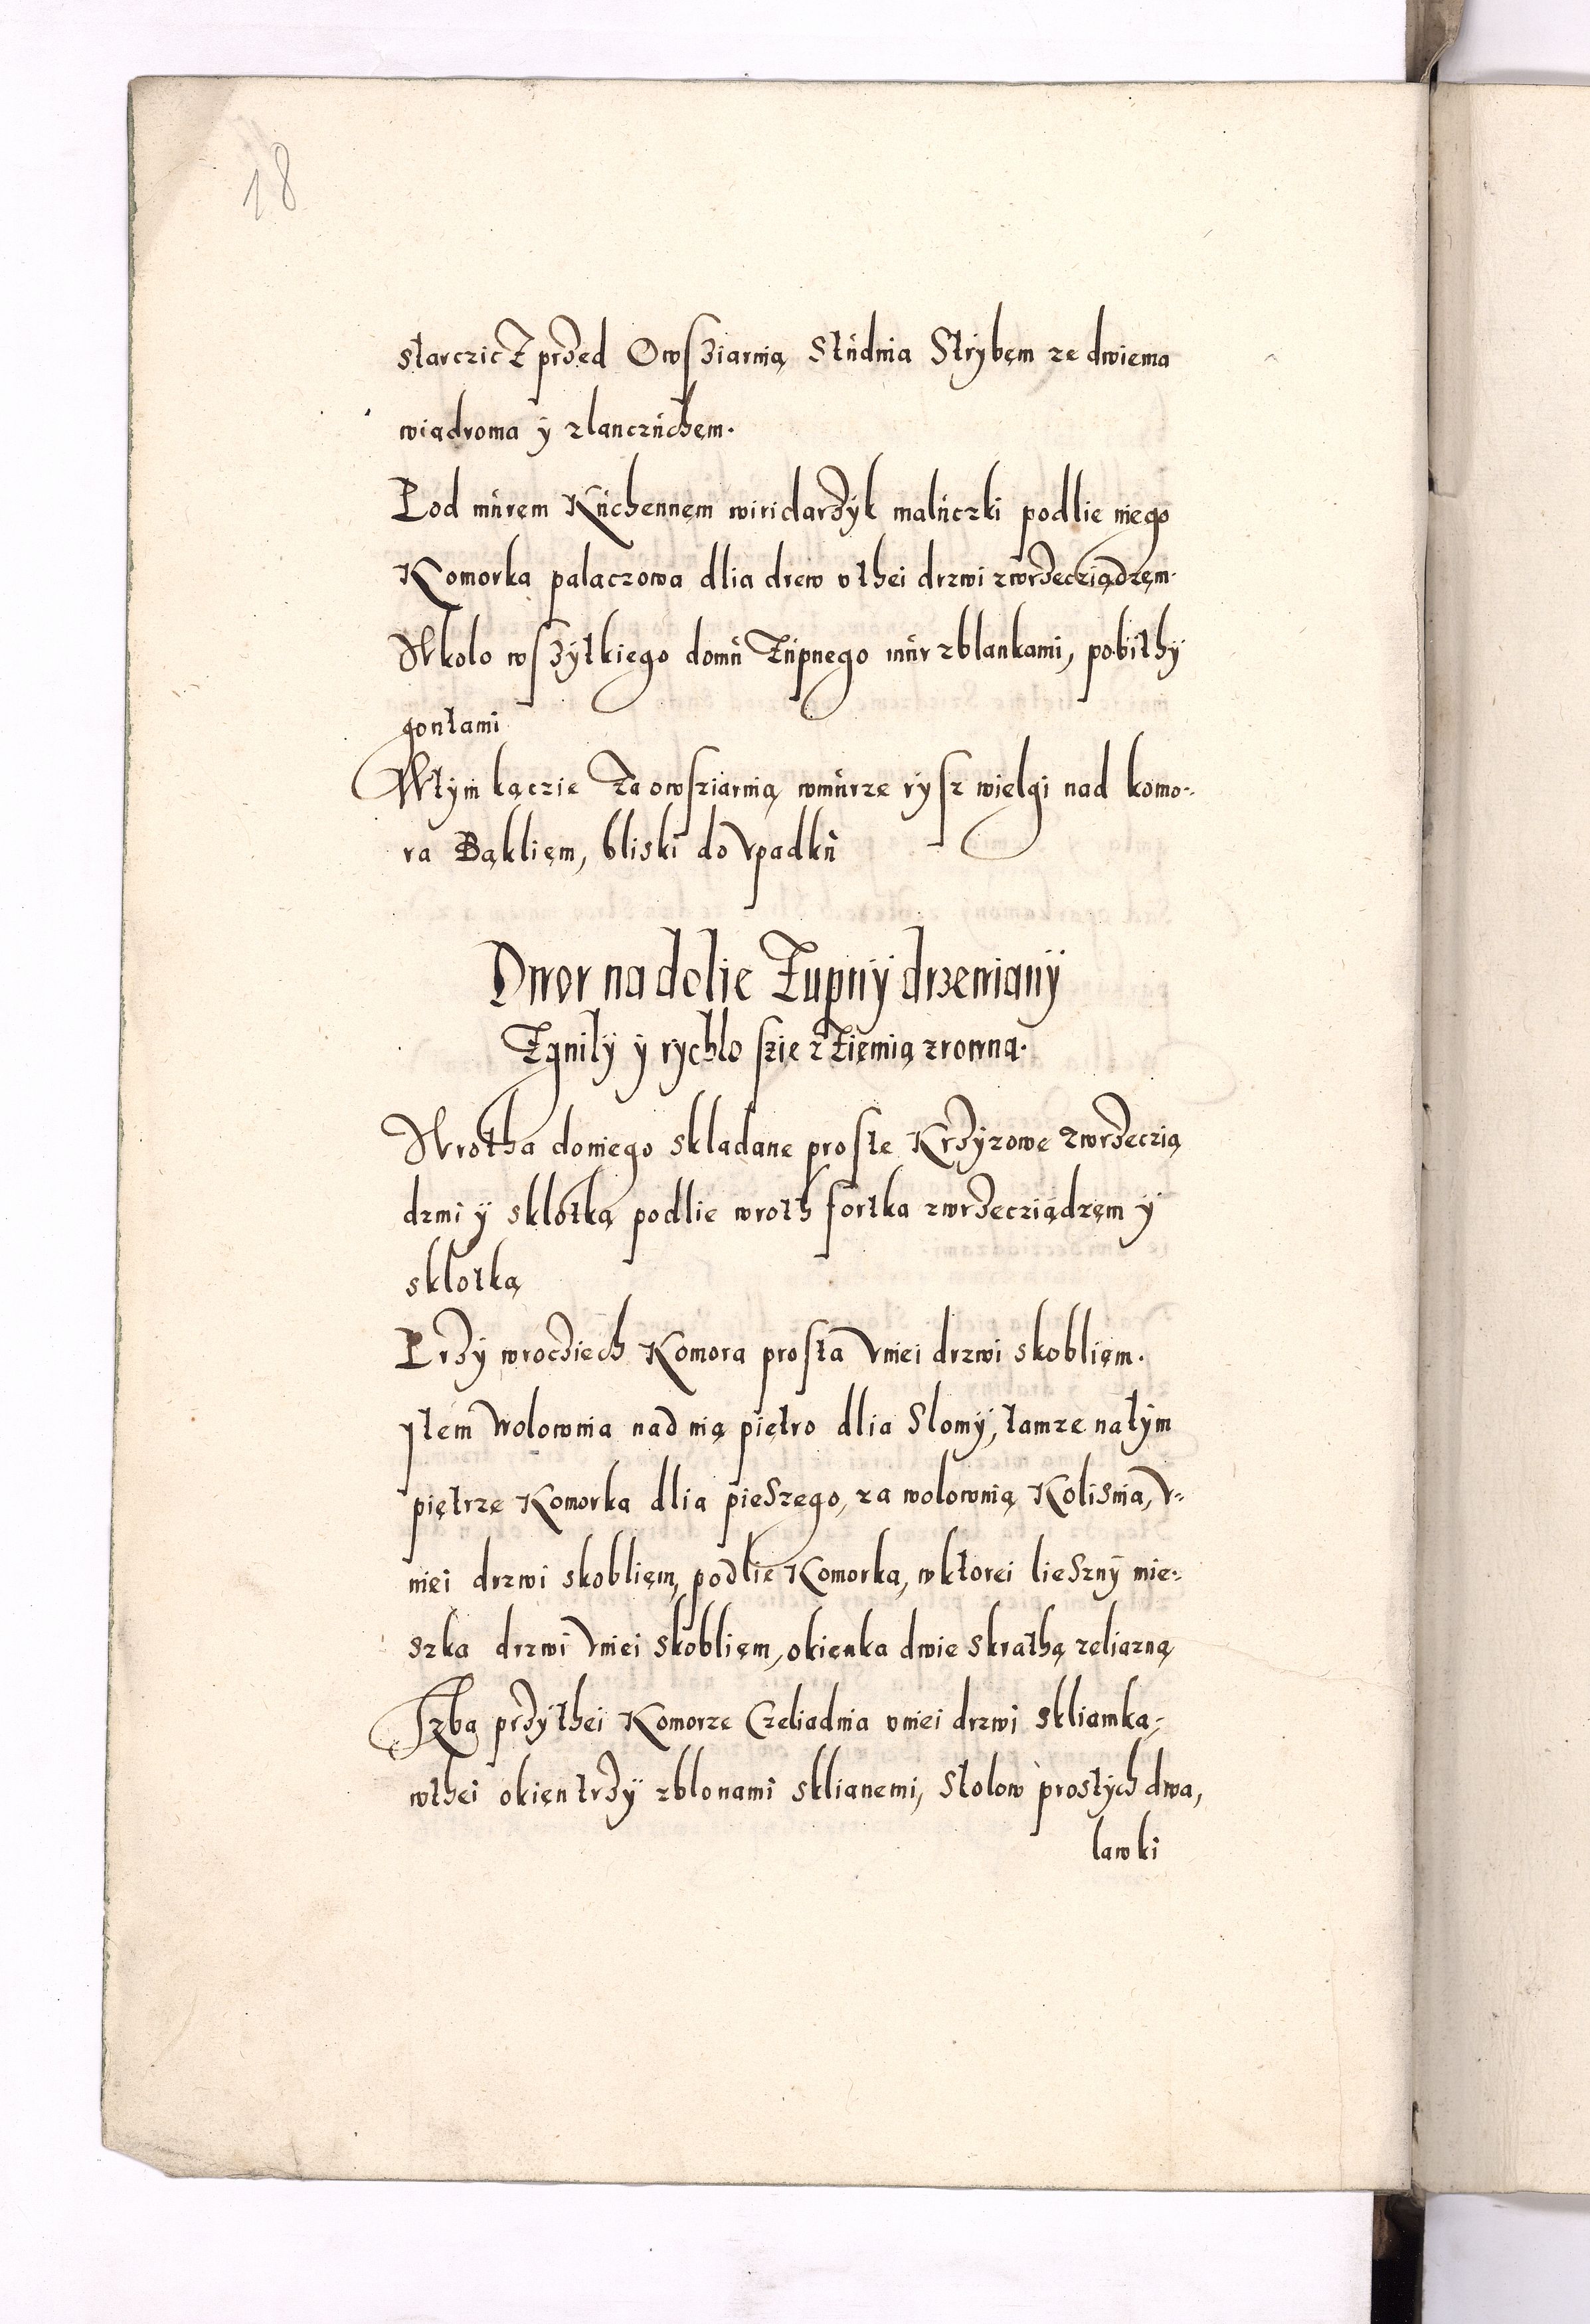 18
starczicz przed Owsziarnią Studnia Strybęm ze dwiema
wiądroma ÿ zlanczuchęm.
Pod murem Kuchennęm wiridarzÿk maluczki podlie niego
Komorka palaczowa dlia drew v thei drzwi zwrzecziądzęm.
Wkolo wszÿtkiego domu Zupnego mur zblankami, pobithÿ
gontami
Wtÿm kączie Za owsziarnią wmurze rÿsz wielgi nad komo-
ra Bąklięm, bliski do vpadku
Dwor na dolie Zupnÿ drzewianÿ
Zgnilÿ ÿ rychlo szię z Ziemią zrowna.
Wrotha doniego skladane proste Krzÿzowe zwrzeczią
dzmi ÿ sklotką podlie wroth fortka zwrzecziądzęm ÿ
sklotką
Przÿ wrocziech Komora prosta vniei drzwi skoblięm.
Item Wolownia nad nią piętro dlia Slomÿ, tamze natÿm
piętrze Komorka dlia pieszego, za wolownią Kolisnia, v-
niei drzwi skoblięm, podlie Komorka, wktorei liesznÿ mie-
szka drzwi vniei skoblięm, okięnka dwie skrathą zeliazną
Izba przÿ thei Komorze Czeliadnia vniei drzwi skliamką,
wthei okięn trzÿ zblonami sklianemi, Stolow prostÿch dwa,
lawki